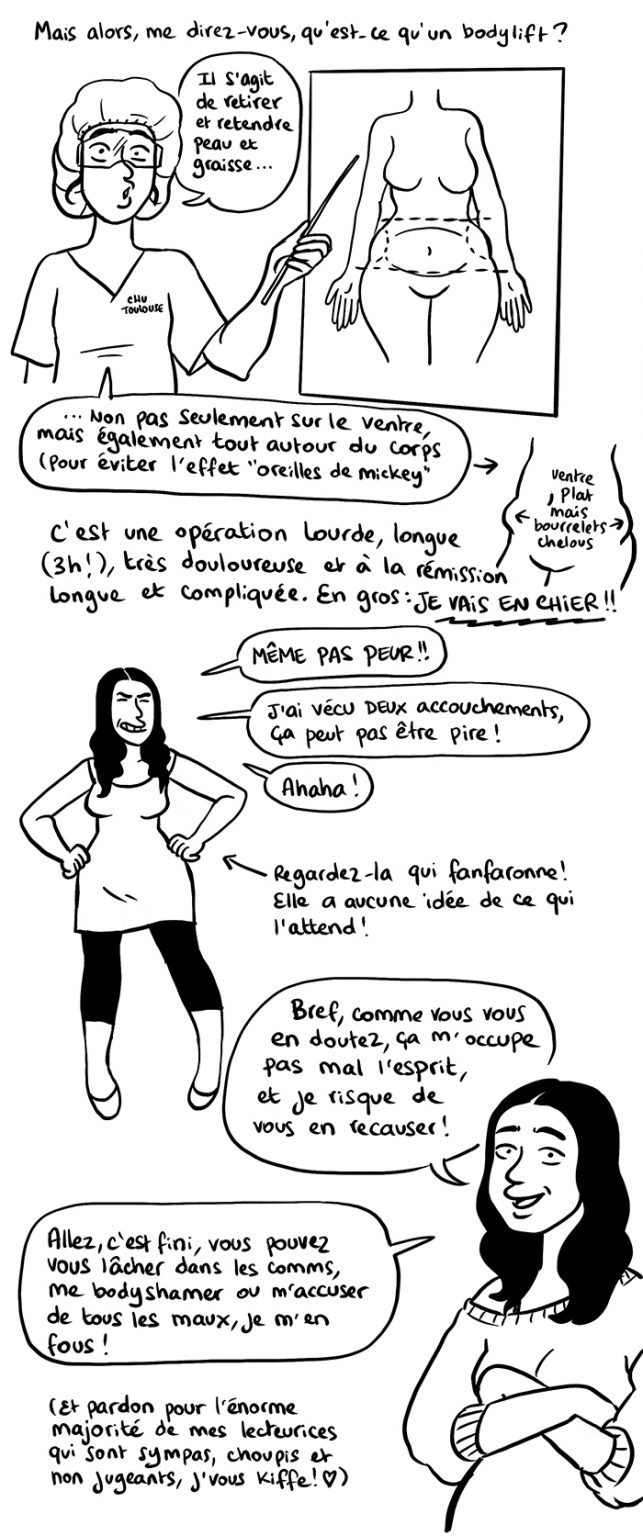 Mais alors, me direz-vous, qu'est-ce qu'un bodylift?
Il s'agit
de retirer
et retendre
peau et
graisse...
CHU
TOULOUSE
... Non pas seulement sur le ventre,
mais également tout autour du corps
(Pour éviter l'effet "oreilles de mickey"
ventre
plat
mais
bourrelets
chelous
C'est une opération lourde, longue
(3h!), très douloureuse et à la rémission
longue et compliquée. En gros: JE VAIS EN CHIER!!
MÊME PAS PEUR!!
J'ai vécu DEUX accouchements,
ça peut pas être pire!
Ahaha!
Regardez-la qui fanfaronne!
Elle a aucune idée de ce qui
l'attend!
Bref, comme vous vous
en doutez, ça m'occupe
pas mal l'esprit,
et je risque de
vous en recauser!
Allez, c'est fini, vous pouvez
vous lâcher dans les comms,
me bodyshamer ou m'accuser
de tous les maux, je m'en
fous!
(Et pardon pour l'énorme
majorité de mes lecteurices
qui sont sympas, choupis et
non jugeants, j'vous kiffe!♡)